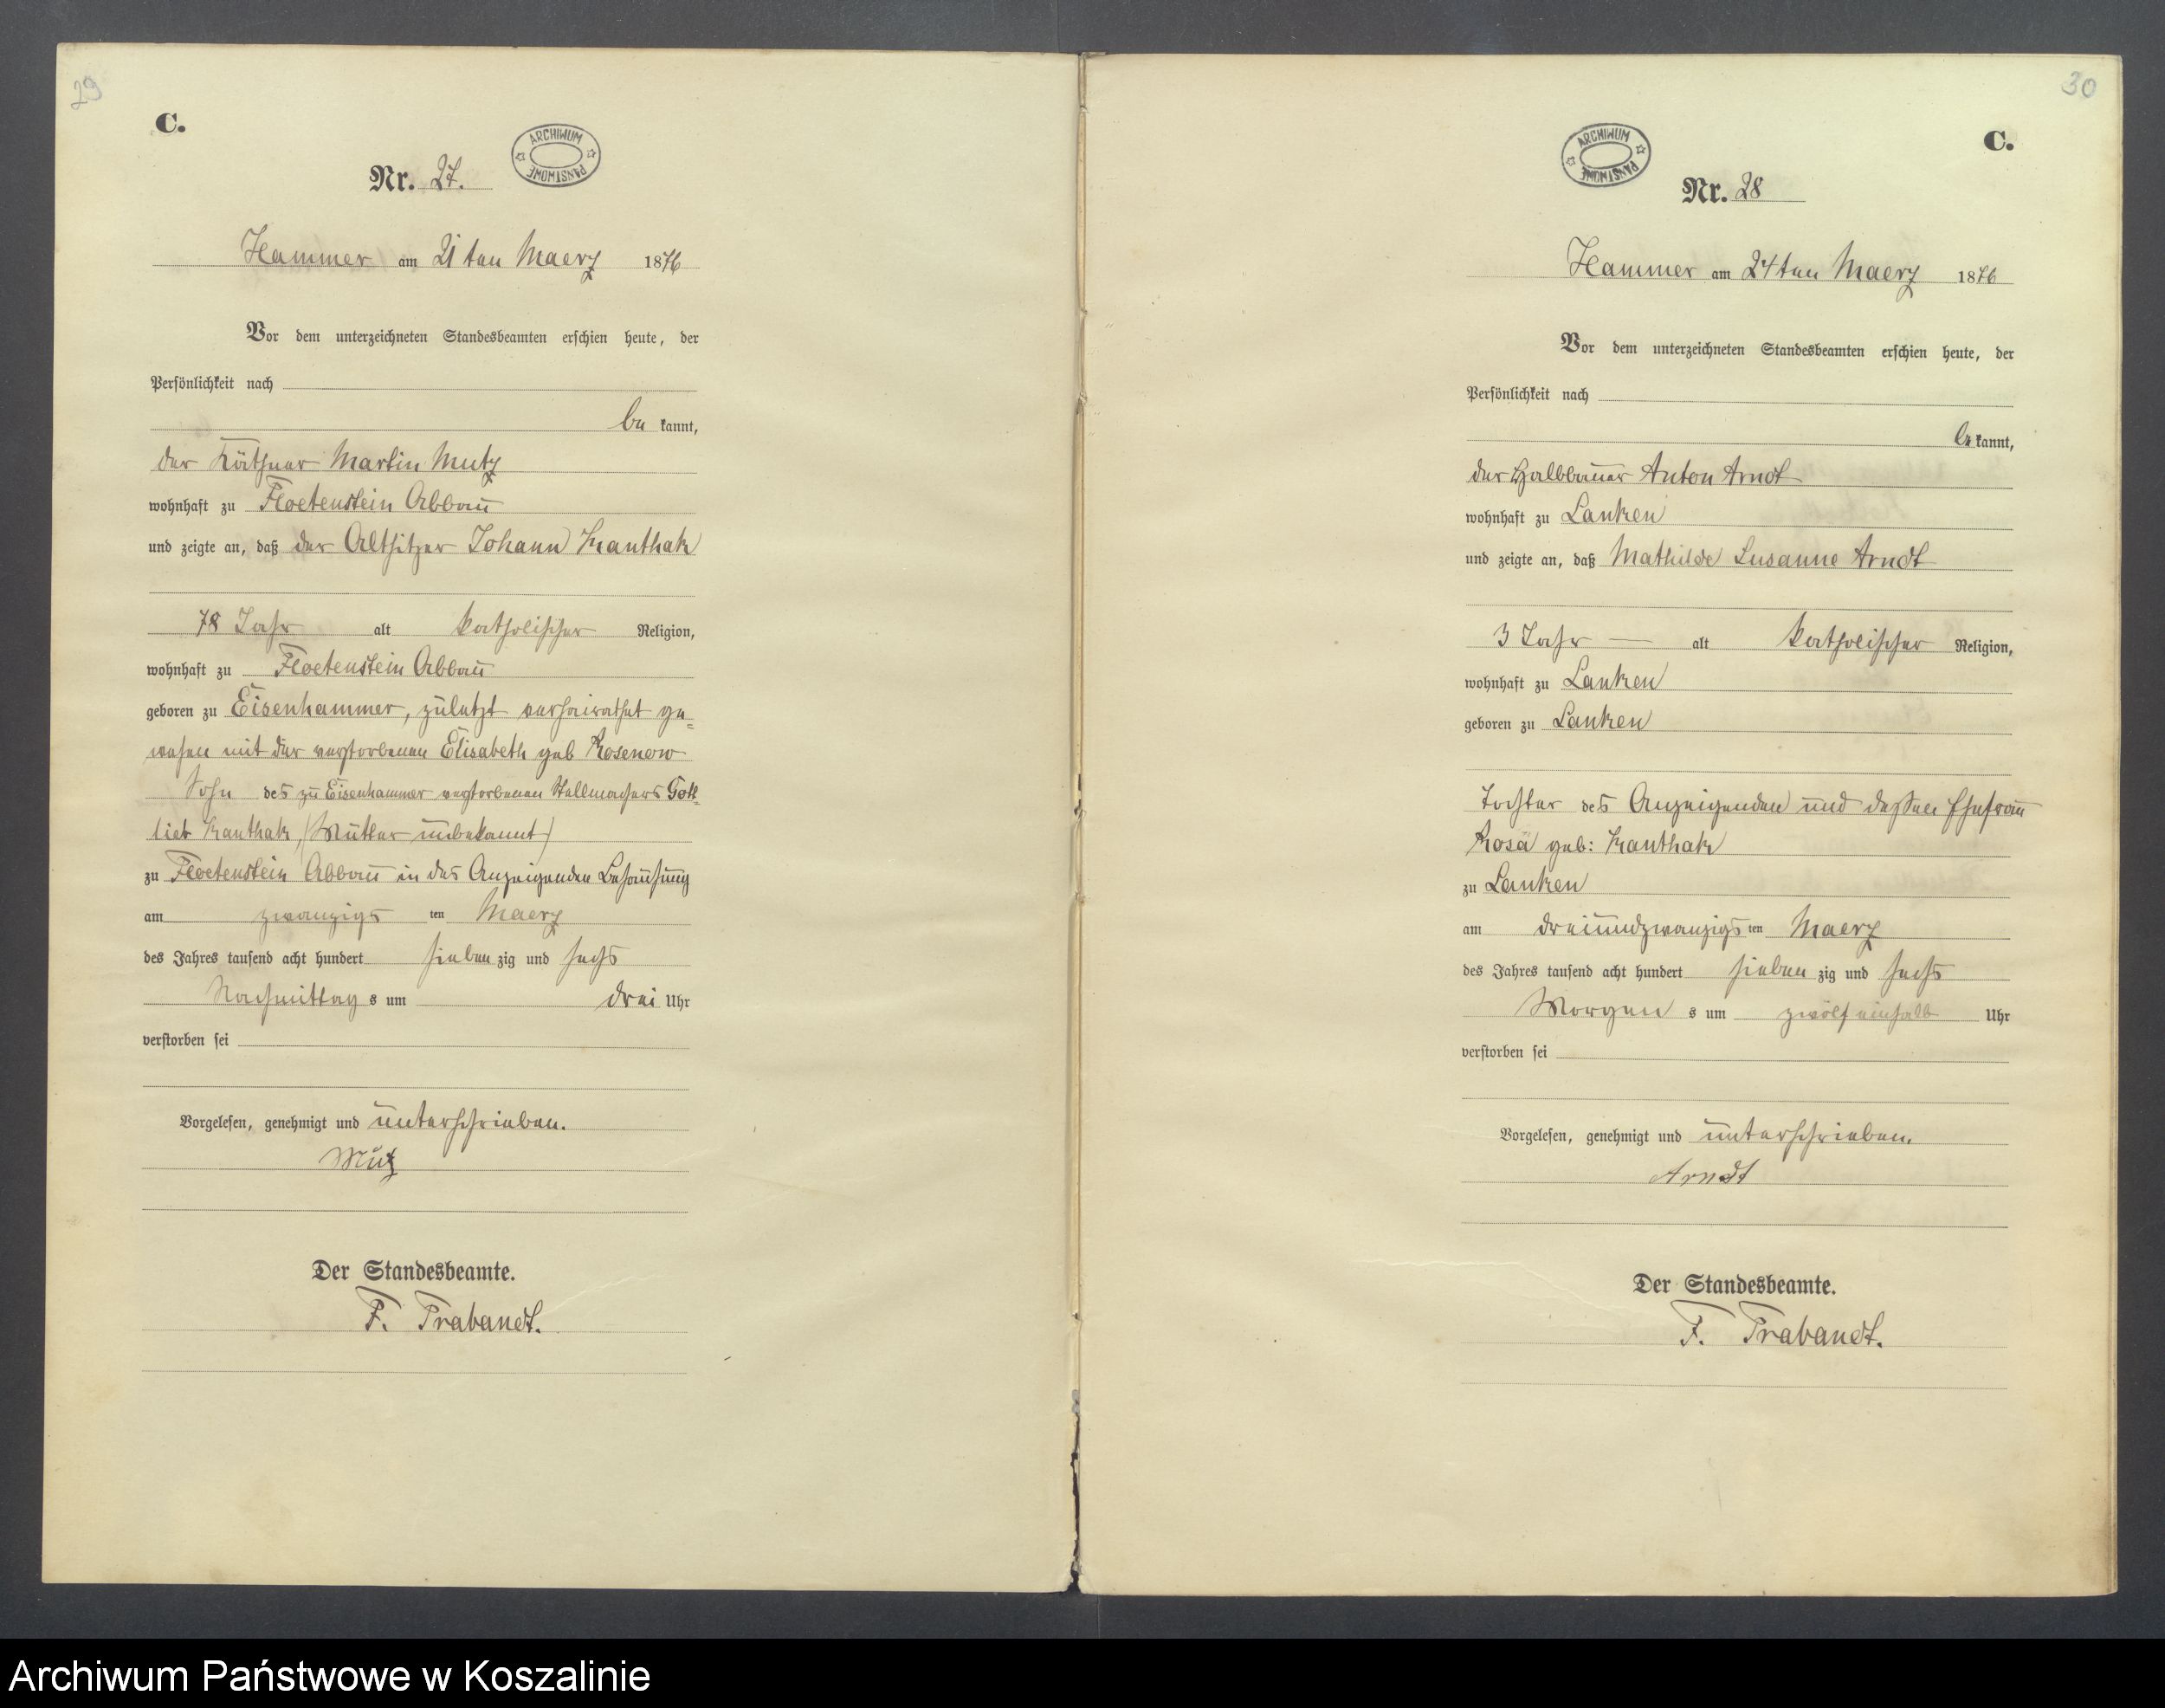 29
C.
ARCHIWUM PAŃSTWOWE
Nr. 27.
Hammer am 21ten Maerz 1876
Vor dem unterzeichneten Standesbeamten erschien heute, der
Persönlichkeit nach
be kannt,
der Käthner Martin Mutz
wohnhaft zu Floetenstein Abbau
und zeigte an, daß der Altsitzer Johann Kanthak
78 Jahr alt katholischer Religion,
wohnhaft zu Floetenstein Abbau
geboren zu Eisenhammer, zuletzt verheirathet ge=
wesen mit der verstorbenen Elisabeth geb Rosenow
Sohn des zu Eisenhammer verstorbenen Stellmachers Gott=
lieb Kanthak, (Mutter unbekannt)
zu Floetenstein Abbau in des Anzeigenden Behausung
am zwanzigs ten Maerz
des Jahres tausend acht hundert sieben zig und sechs
Nachmittag s um drei Uhr
verstorben sei
Vorgelesen, genehmigt und unterschrieben.
Mutz
Der Standesbeamte.
F. Trabandt.
30
C.
ARCHIWUM PAŃSTWOWE
Nr. 28
Hammer am 24ten Maerz 1876
Vor dem unterzeichneten Standesbeamten erschien heute, der
Persönlichkeit nach
be kannt,
der Halbbauer Anton Arndt
wohnhaft zu Lanken
und zeigte an, daß Mathilde Susanne Arndt
3 Jahr — alt katholischer Religion,
wohnhaft zu Lanken
geboren zu Lanken
Tochter des Anzeigenden und dessen Ehefrau
Rosa geb: Kanthak
zu Lanken
am dreiundzwanzigs ten Maerz
des Jahres tausend acht hundert sieben zig und sechs
Morgen s um zwölfeinhalb Uhr
verstorben sei
Vorgelesen, genehmigt und unterschrieben.
Arndt
Der Standesbeamte.
F. Trabandt.
Archiwum Państwowe w Koszalinie